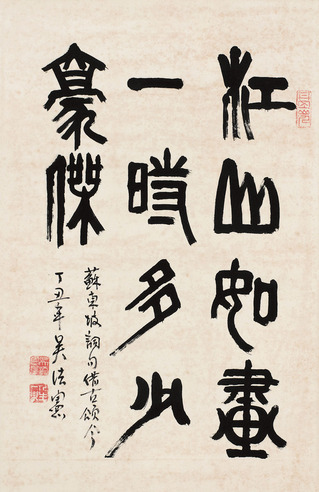 江山如畫
一時多少
豪傑
蘇東坡詞句借古頌今
丁丑年吳法憲